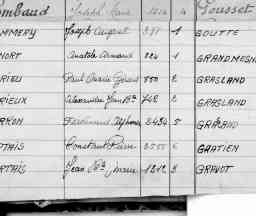 ombaud Joseph Marie 4 Gousset
MMERY Joseph August 391 1 GOUTTE
NORT Anatole Armand 224 1 GRANDMESN
RIEU Paul Marie Gérard 550 2 GRASLAND
RIEUX Alexandre Jean Bte 742 2 GRASLAND
RRON Ferdinand Alphonse 2434 5
PTAIS Constant Pierre 2555 6 GRATIEN
RTAIS Jean Bte Marie 1312 3 GRAVOT